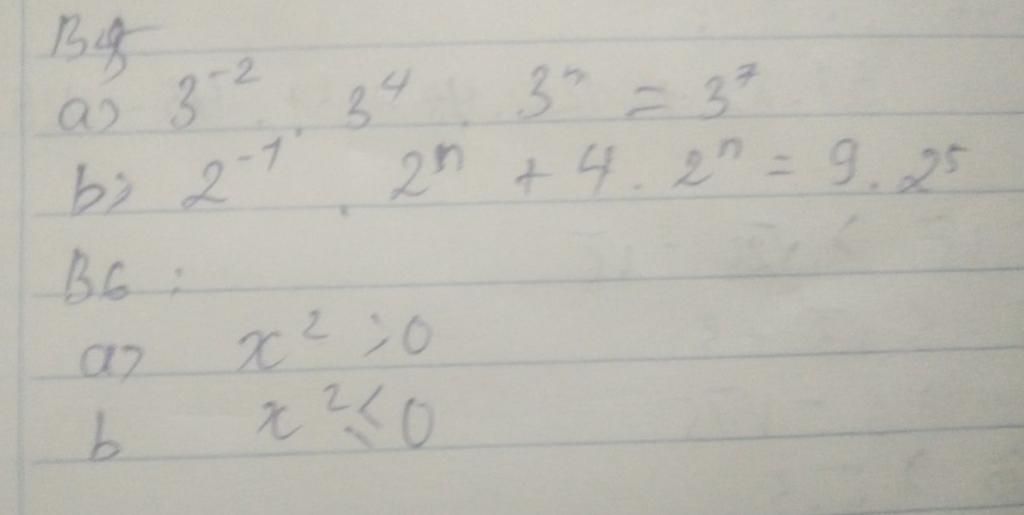 a) 3⁻² . 3⁴ . 3ⁿ = 3⁷
b) 2⁻¹ . 2ⁿ + 4 . 2ⁿ = 9 . 2⁵
B6 :
a) x² > 0
b x² ≤ 0